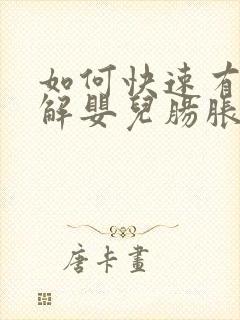 如何快速有
解嬰兒腸脹
唐卡畫